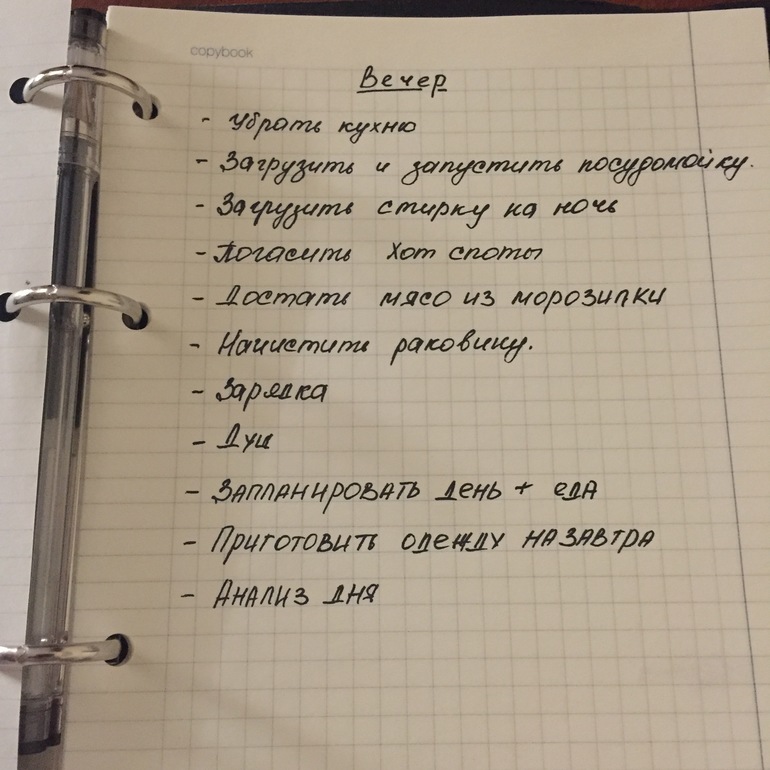 copybook
Вечер
- Убрать кухню
- Загрузить и запустить посудомойку.
- Загрузить стирку на ночь
- Погасить Хот споты
- Достать мясо из морозилки
- Начистить раковину.
- Зарядка
- Душ
- Запланировать день + еда
- Приготовить одежду назавтра
- Анализ дня